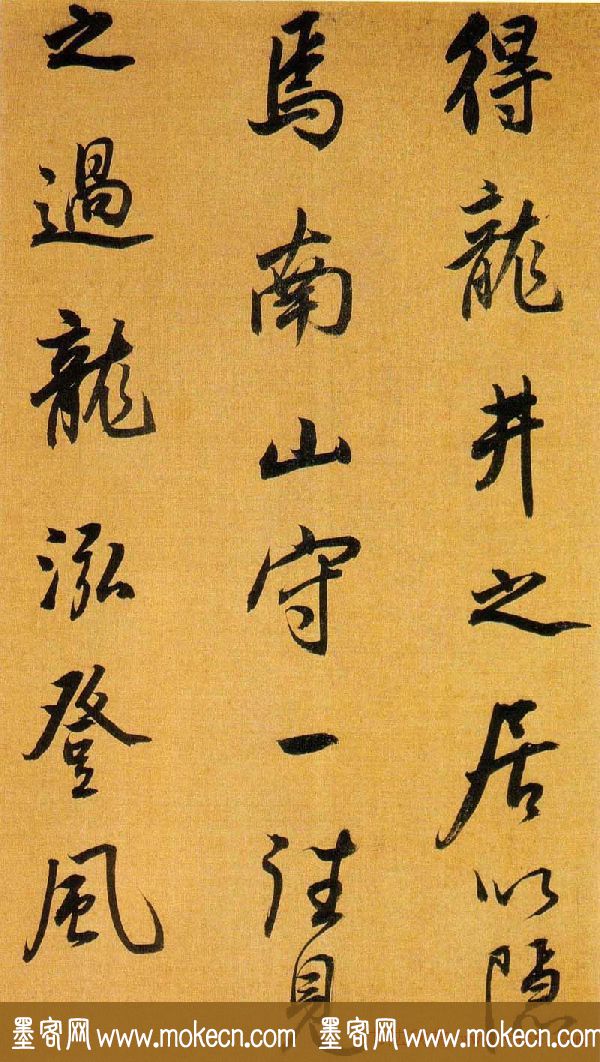 得龍井之居以隱
焉南山守一往見
之過龍泓登風
墨客网 www.mokecn.com 墨客网 www.mokecn.com